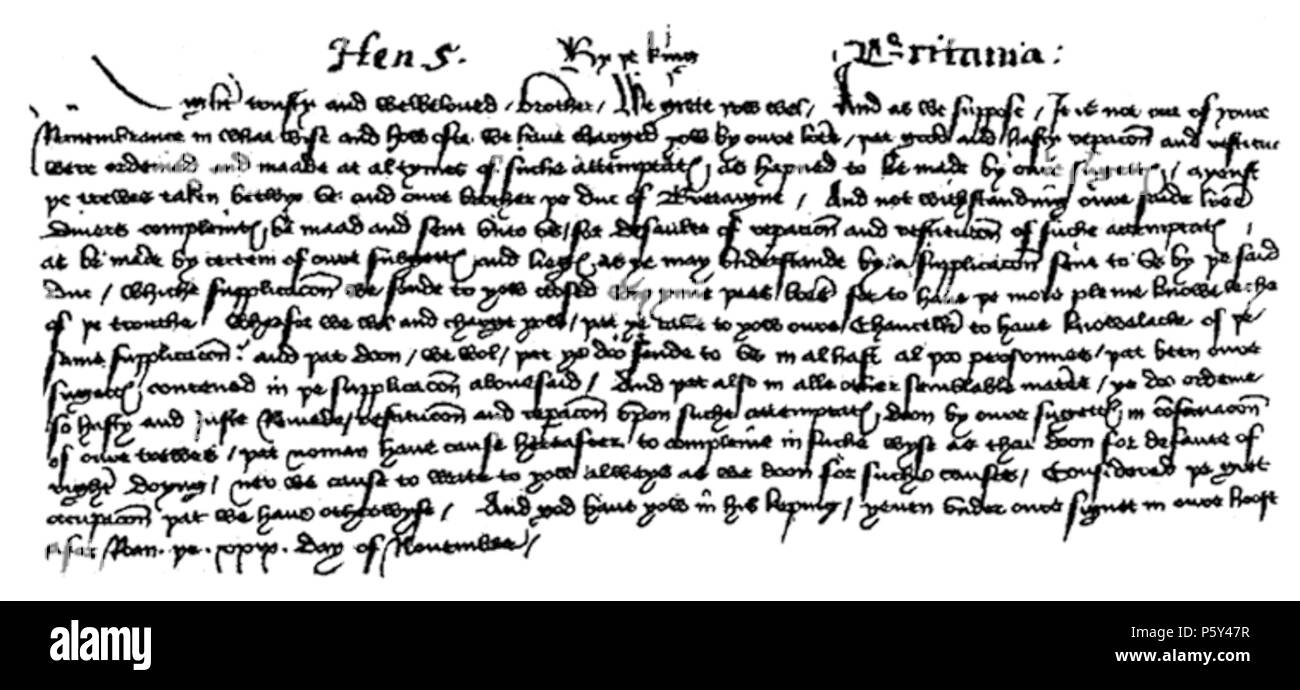 Hen 5. By þe king Britania:
trusty and welbeloued / brother / We grete yow wel / And as we suppose / It is not oute of youre
Remembrance in what wyse and how ofte we haue charged yow by oure lettres / þat good and hasty reparacōn and restitucōn
were ordeined and maade at al tymes of suche attemptats / as hapned to be made by oure sugetts / ayenst
þe trewes taken betwyx vs and oure brother þe duc of Bretaigne / And not withstanding oure saide lettres
diuers compleints be maad and sent vnto vs / for defaulte of reparacōn and restitucōn of suche attemptats /
as be made by certein of oure subgetts and lieges as ye may vnderstande by a supplicacōn sent to vs by þe said
Duc / whiche supplicacōn we sende to yow closed for to haue þe more pleine knoweleche
of þe trouthe Wherfor we wol and charge yow / þat ye calle to yow oure Chancellr to haue knowelache of þe
same supplicacōn. and þat doon / we wol / þat ye doo sende to vs in al hast al þoo personnes / þat been oure
sugetts contened in þe supplicacōn abouesaid / And þat also in alle other semblable matres / ye doo ordeine
so hasty and iuste Remede / restitucōn and reparacōn vpon suche attemptats doon by oure sugetts in conseruacōn
of oure trewes / þat noman haue cause hereafter to compleine in suche wyse as thai doon for defaute of
right doyng / ner we cause to write to yow alweys as we doon for suche causes / Considered þe gret
occupacōn þat we haue otherwyse / And god haue yow in his keping / yeuen vnder oure signet in oure hoost
afor Roan þe xxix day of Nouembre /
alamy
alamy
Image ID: P5Y47R
www.alamy.com